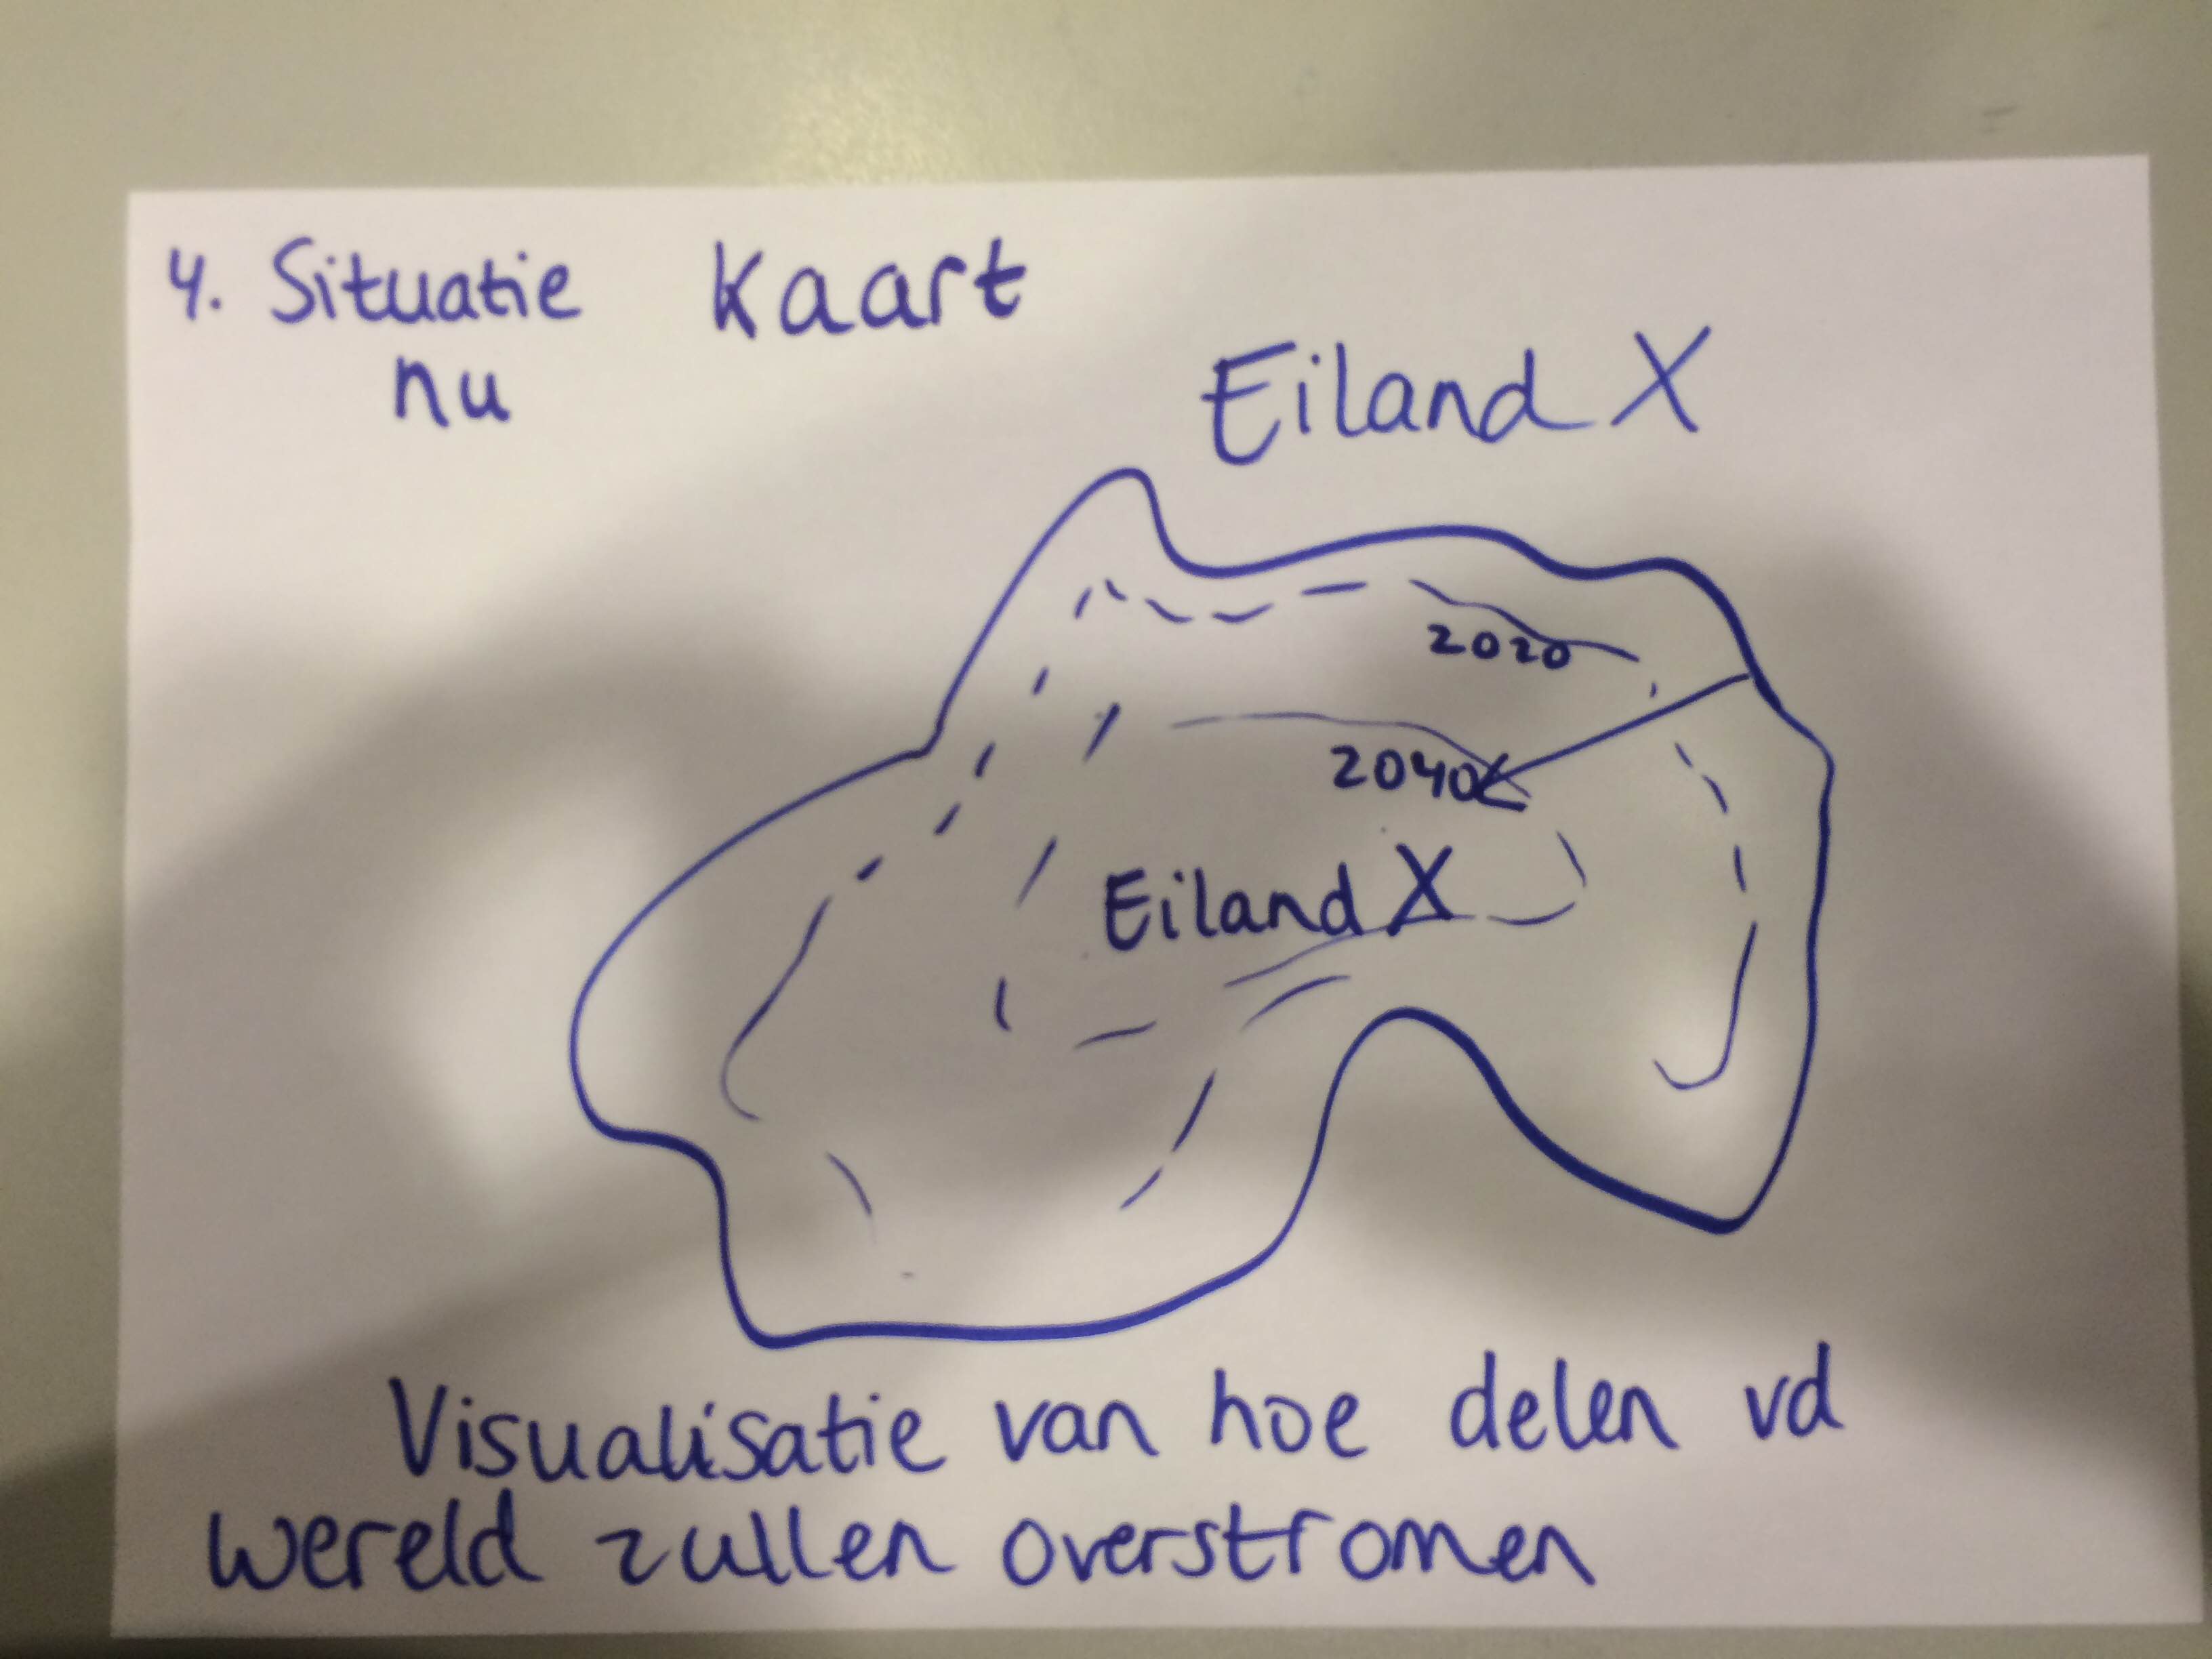 4. Situatie Kaart
nu
Eiland X
2020
2040
Eiland X
Visualisatie van hoe delen vd
wereld zullen overstromen